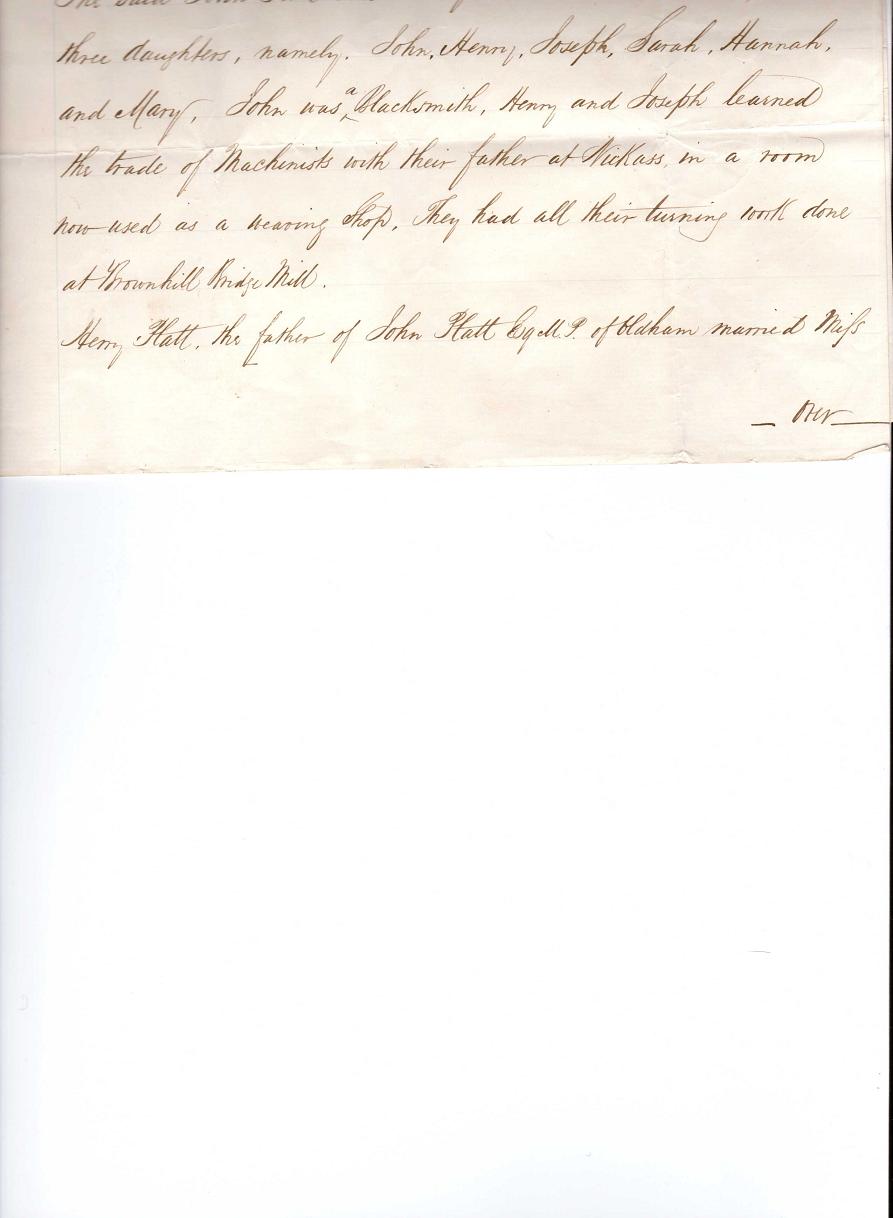 The said John
three daughters, namely. John, Henry, Joseph, Sarah, Hannah,
and Mary, John was a Blacksmith, Henry and Joseph learned
the trade of Machinists with their father at Wickass, in a room
now used as a weaving Shop, They had all their turning work done
at Brownhill Bridge Mill.
Henry Platt, the father of John Platt Esq M.P. of Oldham married Miss
— Over —